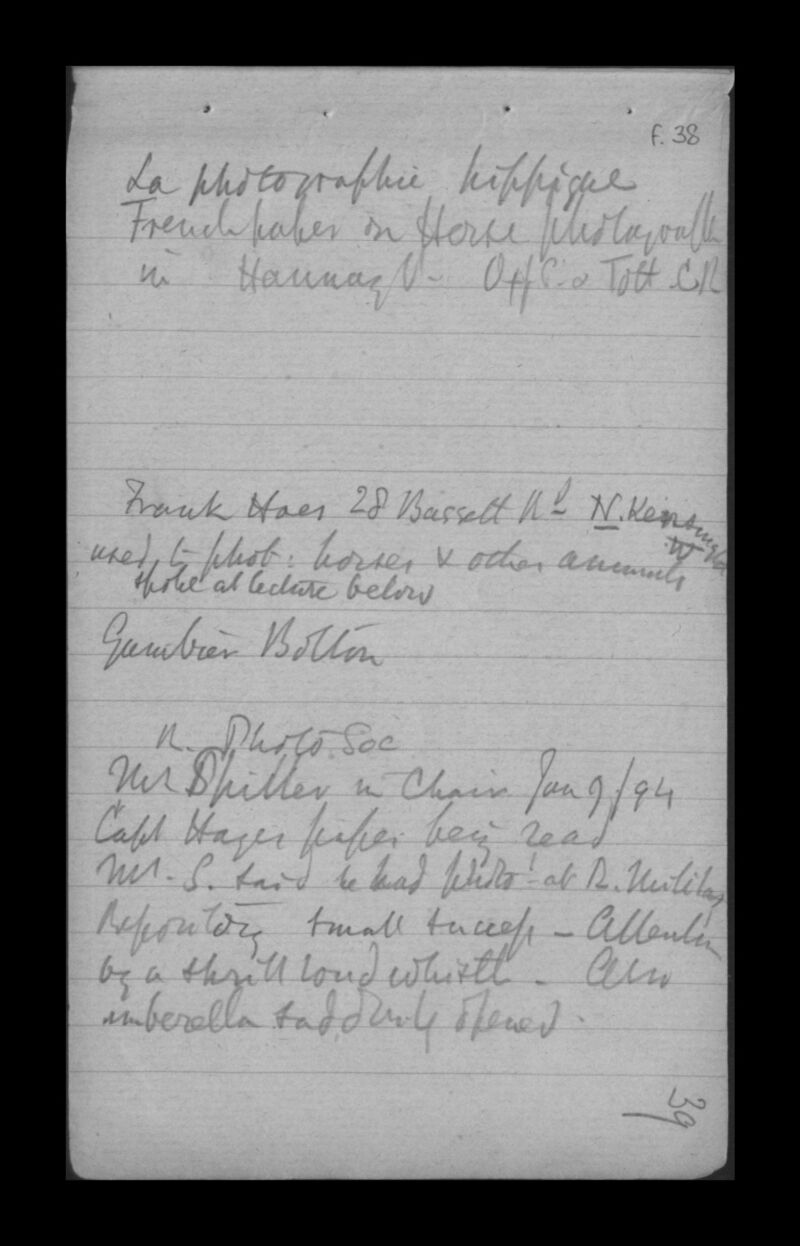 f. 38
La photographie hippique
French paper on Horse photography
in Hannay - Oxf S. & Tott C R
Frank Haes 28 Bassett Rd N. Kensington
W
used to phot: horses & other animals
spoke at lecture below
Gambier Bolton
R. Photo. Soc
Mr Spiller in Chair Jan 9/94
Capt Hayes paper being read
Mr. S. said he had photo'd at R. Military
Repository small success - Attention
by a shrill loud whistle - Also
umberella suddenly opened.
39